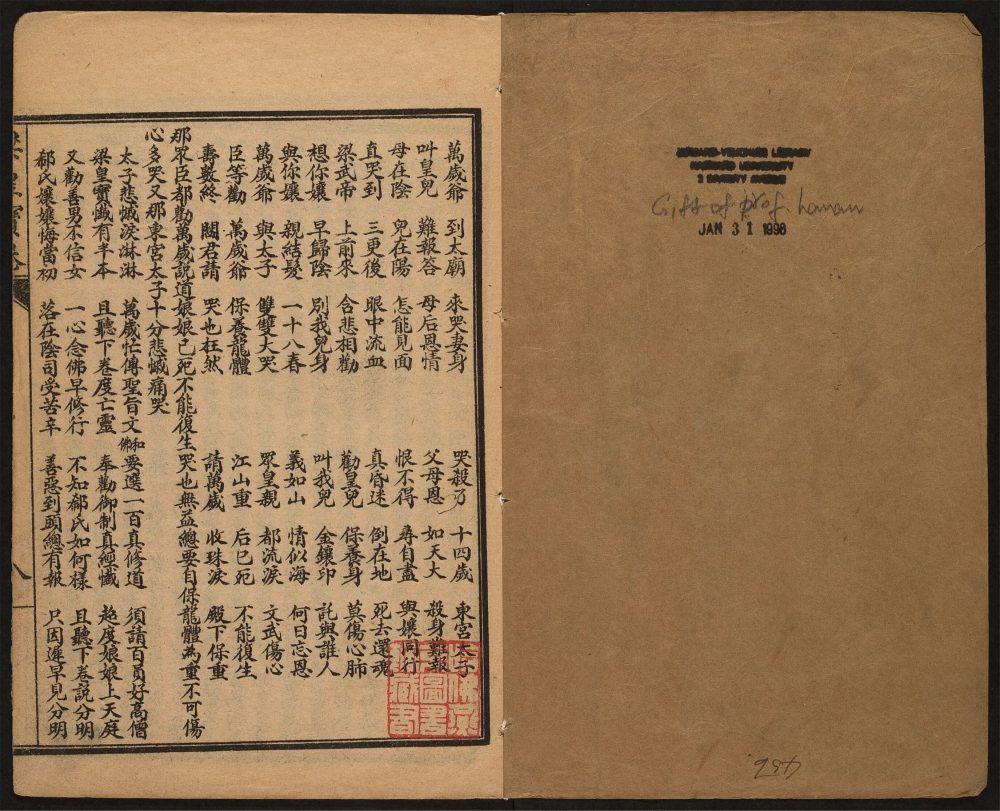 萬歲爺 到太廟 來哭妻身 哭殺了 十四歲 東宮太子
叫皇兒 難報答 母后恩情 父母恩 如天大 殺身難報
母在陰 兒在陽 怎能見面 恨不得 尋自盡 與孃同行
直哭到 三更後 眼中流血 真昏迷 倒在地 死去還魂
梁武帝 上前來 含悲相勸 勸皇兒 保養身 莫傷心肺
想你孃 早歸陰 別我兒身 叫我兒 金鑲印 託與誰人
與你孃 親結髮 一十八春 義如山 情似海 何日忘恩
萬歲爺 與太子 雙雙大哭 眾皇親 都流淚 文武傷心
臣等勸 萬歲爺 保養龍體 江山重 后已死 不能復生
壽數終 閻君請 哭也枉然 請萬歲 收珠淚 殿下保重
那眾臣都勸萬歲説道娘娘已死不能復生哭也無益總要自保龍體為重不可傷
心多哭又那東宮太子十分悲慽痛哭
太子悲慽淚淋淋 萬歲忙傳聖旨文 和佛 要選一百真修道 須請百員好高僧
梁皇寶懺有半本 且聽下卷度亡靈 奉勸御制真經懺 超度娘娘上天庭
又勸善男不信女 一心念佛早修行 不知郗氏如何樣 且聽下卷説分明
郗氏孃孃悔當初 落在陰司受苦辛 善惡到頭總有報 只因遲早見分明
八
HARVARD-YENCHING LIBRARY
HARVARD UNIVERSITY
2 DIVINITY AVENUE
Gift of Prof. Hanan
JAN 31 1996